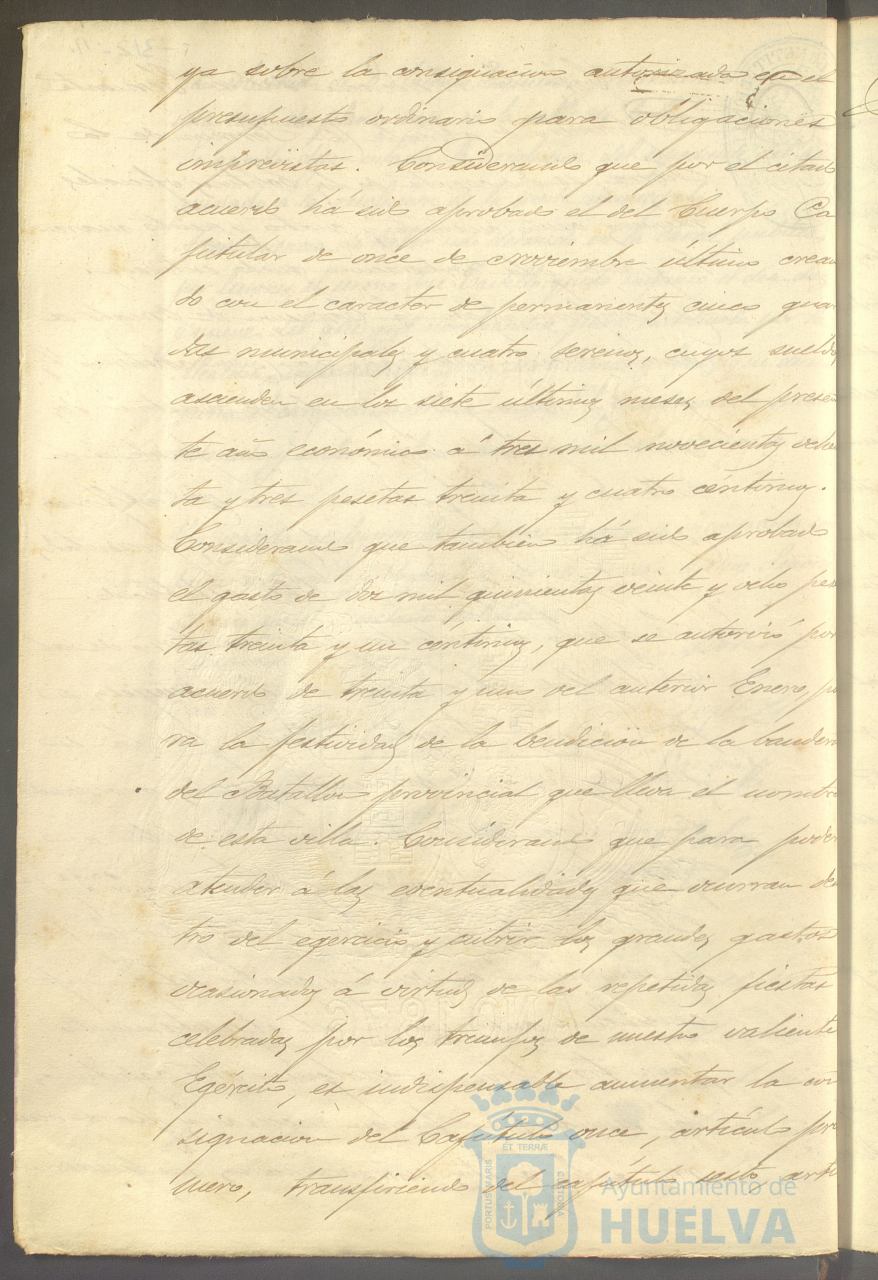 ya sobre la consignacion autorizada en el
presupuesto ordinario para obligaciones
imprevistas. Considerando que por el citado
acuerdo há sido aprobado el del Cuerpo Ca
pitular de once de Noviembre último crean
do con el caracter de permanentes cinco guar
das municipales y cuatro serenos, cuyos sueldos
ascienden en los siete últimos meses del presen
te año económico á tres mil novecientas ochen
ta y tres pesetas treinta y cuatro céntimos.
Considerando que tambien há sido aprobado
el gasto de dos mil quinientas veinte y ocho pese
tas treinta y un céntimos, que se autorizó por
acuerdo de treinta y uno del anterior Enero, pa
ra la festividad de la bendicion de la bandera
del Batallon provincial que lleva el nombre
de esta villa. Considerando que para poder
atender á las eventualidades que ocurran den
tro del egercicio y cubrir los grandes gastos
ocasionados á virtud de las repetidas fiestas
celebradas por los triunfos de nuestro valiente
Egército, es indispensable aumentar la con
signacion del Capítulo once, artículo pri
mero, transfiriendo del capítulo sesto artí
PORTUS MARIS ET TERRÆ CUSTODIA
Ayuntamiento de
HUELVA